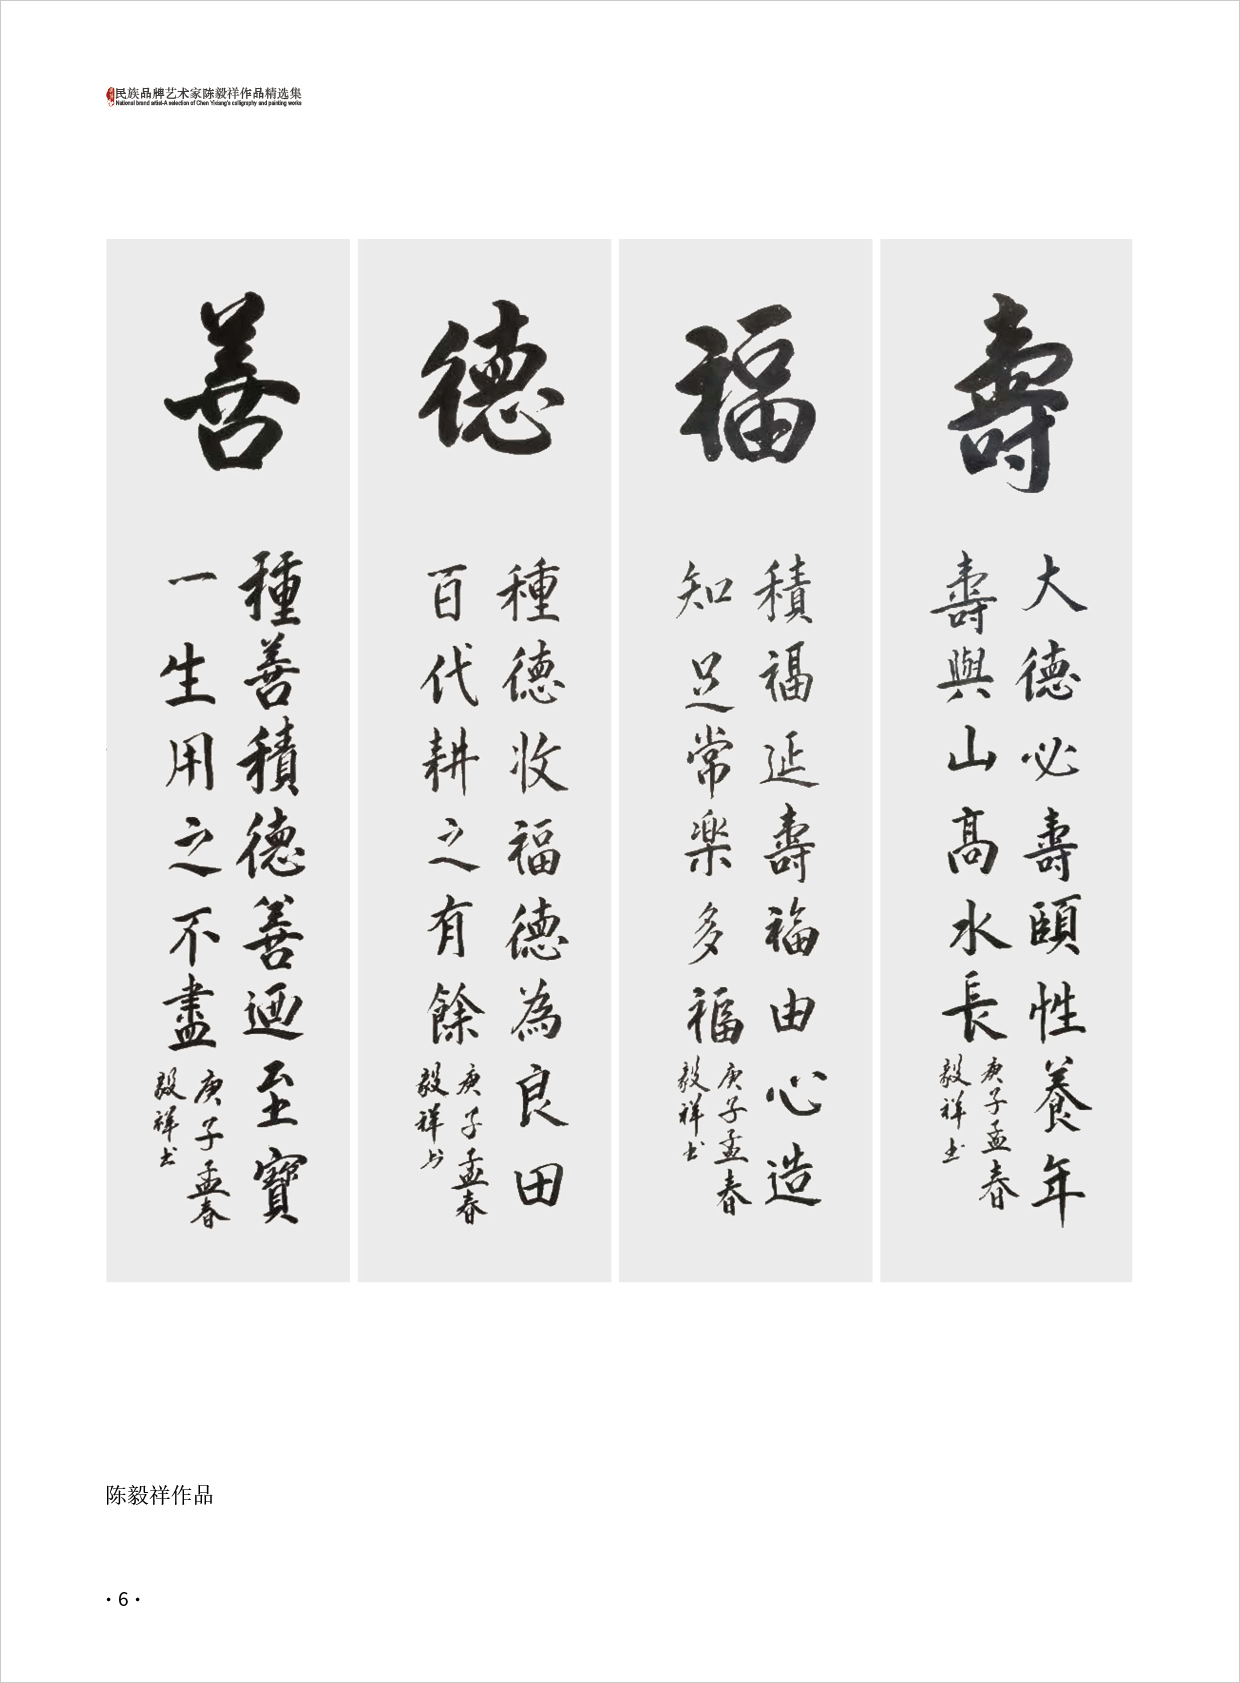 民族品牌艺术家陈毅祥作品精选集
National brand artist-A selection of Chen Yixiang's calligraphy and painting works
壽
大德必壽頤性養年
壽與山高水長
庚子孟春
毅祥书
福
積福延壽福由心造
知足常楽多福
庚子孟春
毅祥书
德
種德收福德為良田
百代耕之有餘
庚子孟春
毅祥书
善
種善積德善迺至寶
一生用之不盡
庚子孟春
毅祥书
陈毅祥作品
· 6 ·